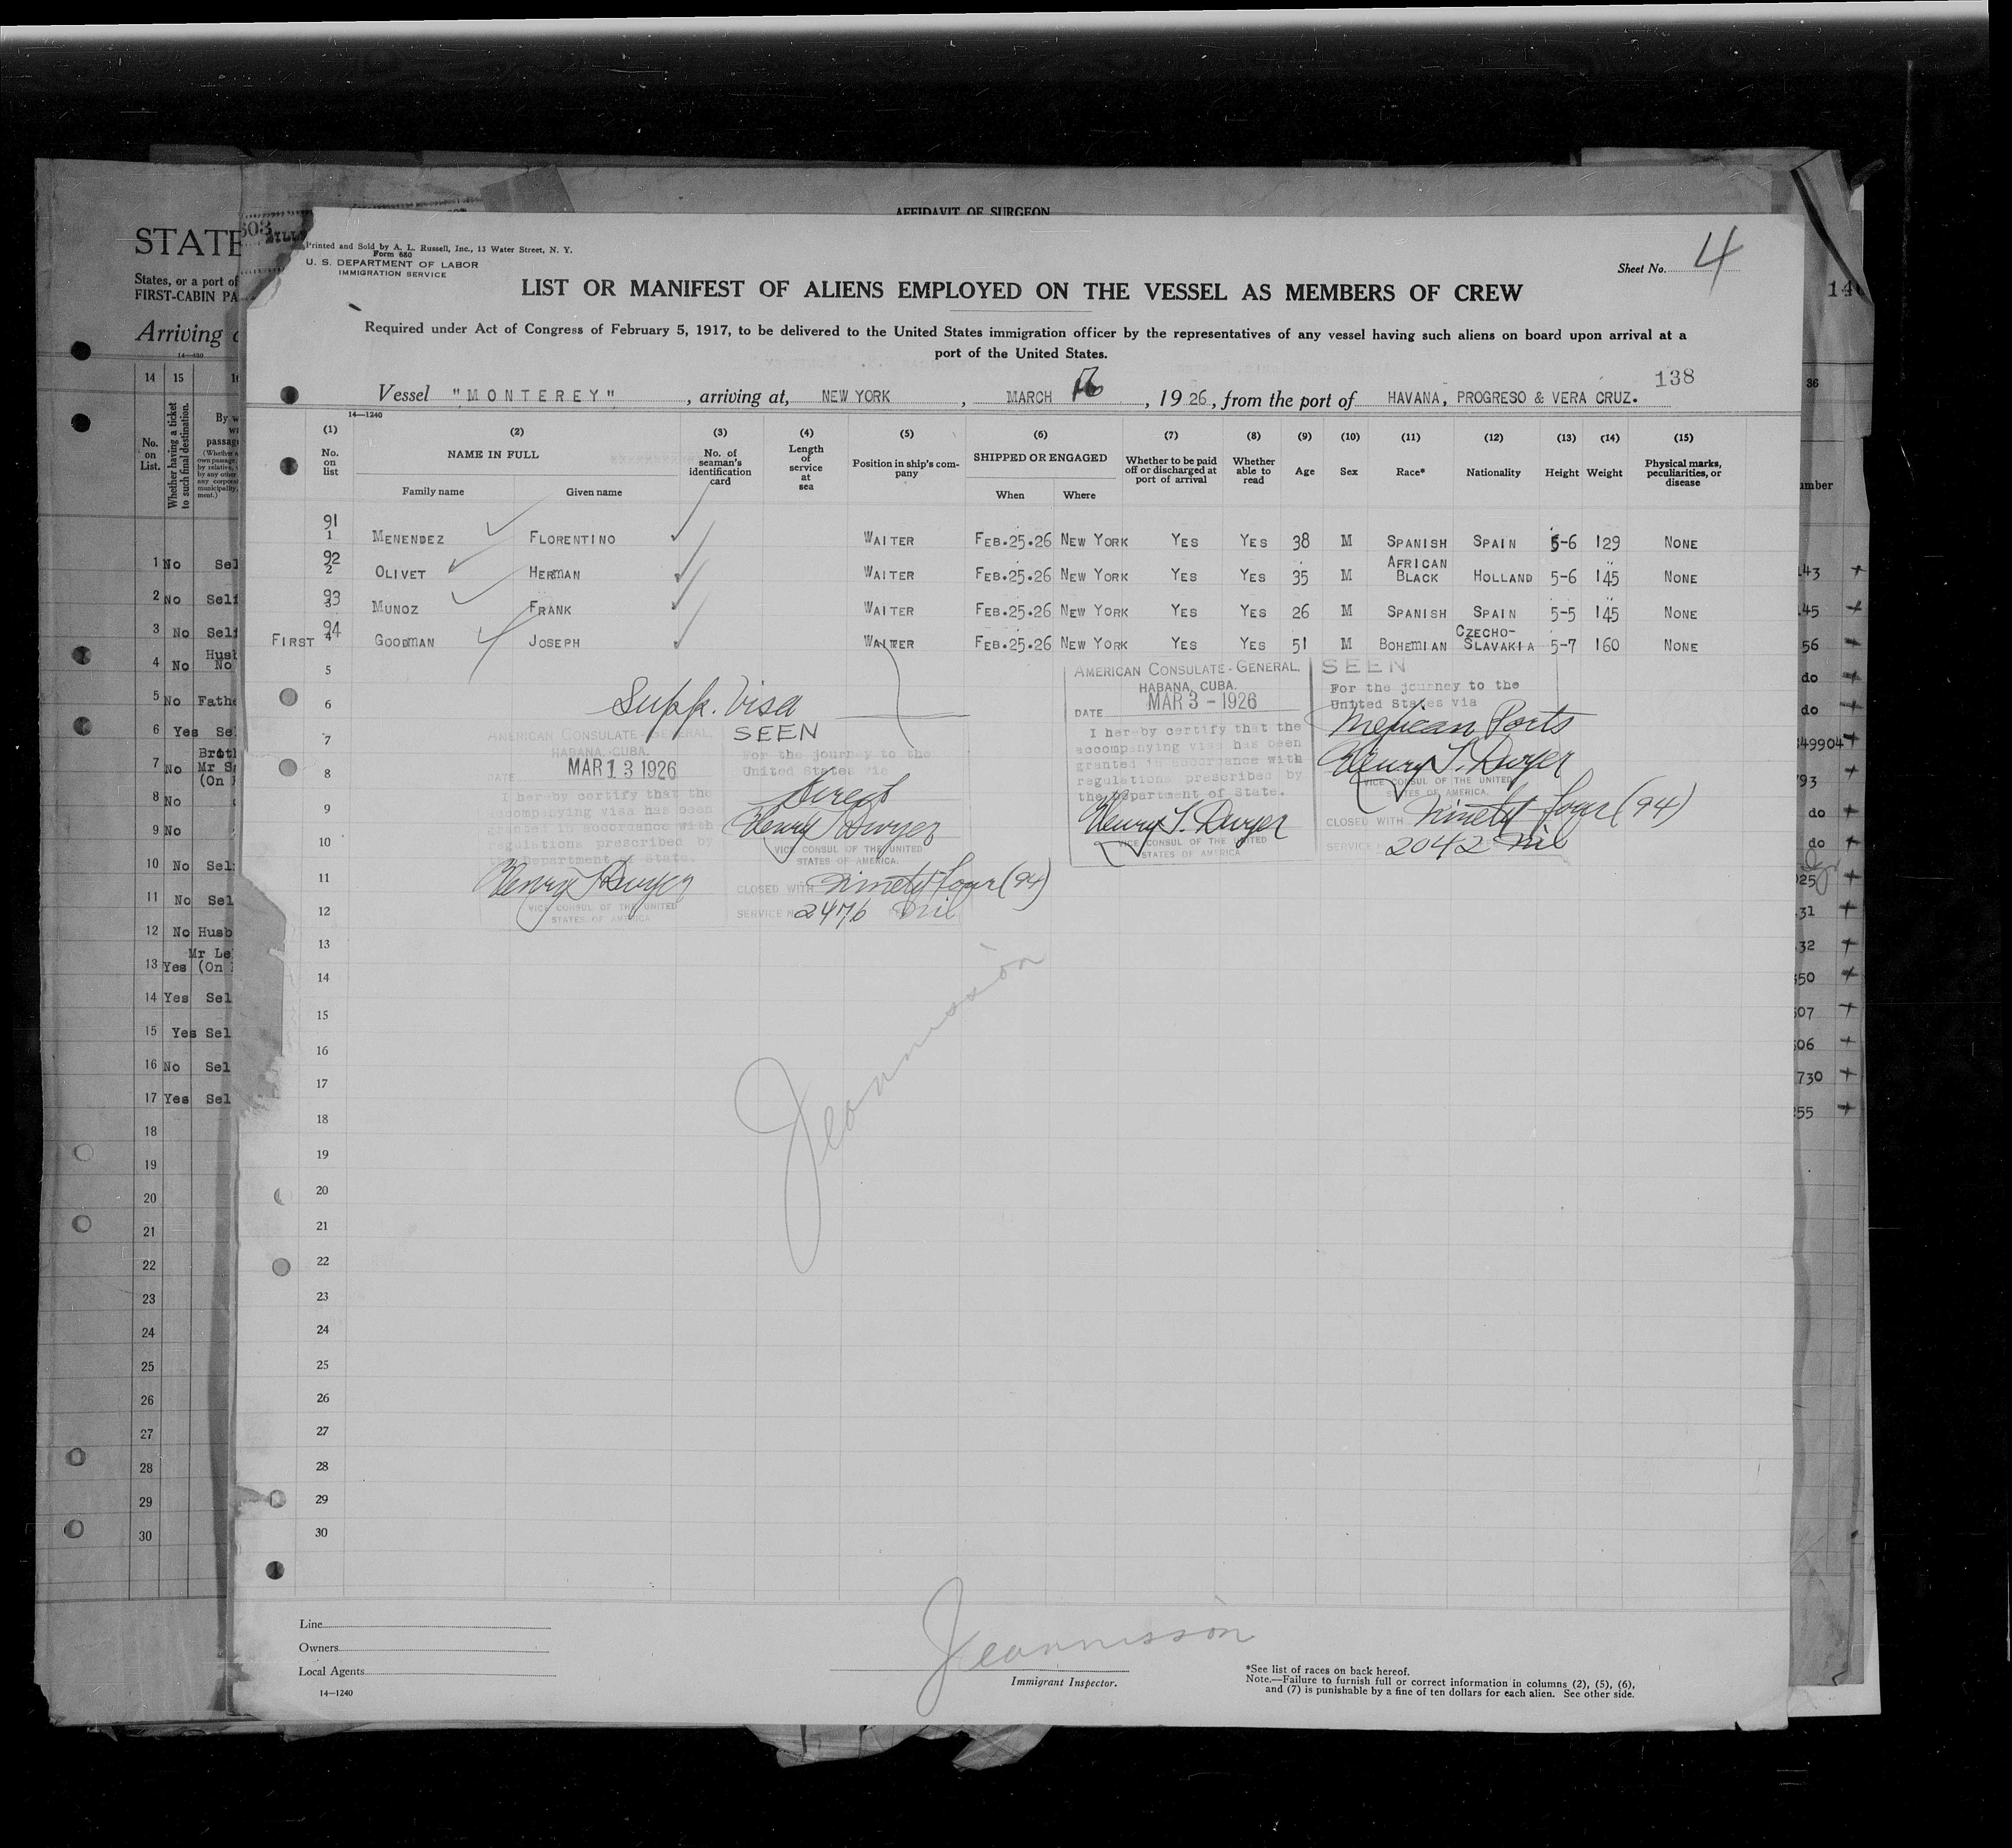 AFFIDAVIT OF SURGEON
STATE
States, or a port of
FIRST-CABIN PA
Arriving
14—430
14 15
No. on List.
Whether having a ticket to such final destination.
1 No Sel
2 No Self
3 No Self
Husb
4 No No
5 No Fathe
6 Yes Se
Broth
7 No Mr S
(On
8 No
9 No
10 No Sel
11 No Sel
12 No Husb
Mr Le
13 Yes (On
14 Yes Sel
15 Yes Sel
16 No Sel
17 Yes Sel
18
19
20
21
22
23
24
25
26
27
28
29
30
Printed and Sold by A. L. Russell, Inc., 13 Water Street, N. Y.
Form 680
U. S. DEPARTMENT OF LABOR
IMMIGRATION SERVICE
Sheet No. 4
LIST OR MANIFEST OF ALIENS EMPLOYED ON THE VESSEL AS MEMBERS OF CREW
Required under Act of Congress of February 5, 1917, to be delivered to the United States immigration officer by the representatives of any vessel having such aliens on board upon arrival at a
port of the United States.
138
Vessel "MONTEREY", arriving at, NEW YORK, MARCH 16, 1926, from the port of HAVANA, PROGRESO & VERA CRUZ.
14—1240
(1) (2) (3) (4) (5) (6) (7) (8) (9) (10) (11) (12) (13) (14) (15)
No. on list NAME IN FULL No. of seaman's identification card Length of service at sea Position in ship's company SHIPPED OR ENGAGED Whether to be paid off or discharged at port of arrival Whether able to read Age Sex Race* Nationality Height Weight Physical marks, peculiarities, or disease
Family name Given name When Where
91
1 MENENDEZ FLORENTINO WAITER FEB.25.26 NEW YORK YES YES 38 M SPANISH SPAIN 5-6 129 NONE
92
2 OLIVET HERMAN WAITER FEB.25.26 NEW YORK YES YES 35 M AFRICAN BLACK HOLLAND 5-6 145 NONE
93
3 MUNOZ FRANK WAITER FEB.25.26 NEW YORK YES YES 26 M SPANISH SPAIN 5-5 145 NONE
94
FIRST 4 GOODMAN JOSEPH WAITER FEB.25.26 NEW YORK YES YES 51 M BOHEMIAN CZECHO-SLAVAKIA 5-7 160 NONE
5
6
7
8
9
10
11
12
13
14
15
16
17
18
19
20
21
22
23
24
25
26
27
28
29
30
Supp. Visa
AMERICAN CONSULATE-GENERAL,
HABANA, CUBA.
DATE MAR 13 1926
I hereby certify that the
accompanying visa has been
granted in accordance with
regulations prescribed by
the Department of State.
Henry T. Dwyer
VICE CONSUL OF THE UNITED
STATES OF AMERICA
SEEN
For the journey to the
United States via
Direct
Henry T. Dwyer
VICE CONSUL OF THE UNITED
STATES OF AMERICA.
CLOSED WITH Ninety four (94)
SERVICE No 2476 nil
AMERICAN CONSULATE-GENERAL,
HABANA, CUBA.
DATE MAR 3 - 1926
I hereby certify that the
accompanying visa has been
granted in accordance with
regulations prescribed by
the Department of State.
Henry T. Dwyer
VICE CONSUL OF THE UNITED
STATES OF AMERICA
SEEN
For the journey to the
United States via
Mexican Ports
Henry T. Dwyer
VICE CONSUL OF THE UNITED
STATES OF AMERICA.
CLOSED WITH Ninety four (94)
SERVICE 2042 nil
Line
Owners
Local Agents
14—1240
Immigrant Inspector.
*See list of races on back hereof.
Note.—Failure to furnish full or correct information in columns (2), (5), (6),
and (7) is punishable by a fine of ten dollars for each alien. See other side.
36
do
do
do
do